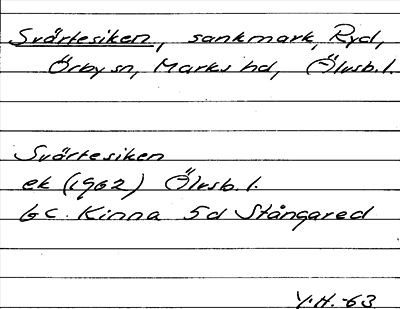 Svärtesiken, sankmark, Ryd,
Örby sn, Marks hd, Älvsb. l.
Svärtesiken
ek (1962) Älvsb. l.
6 C. Kinna 5d Stångared
Y.H. -63